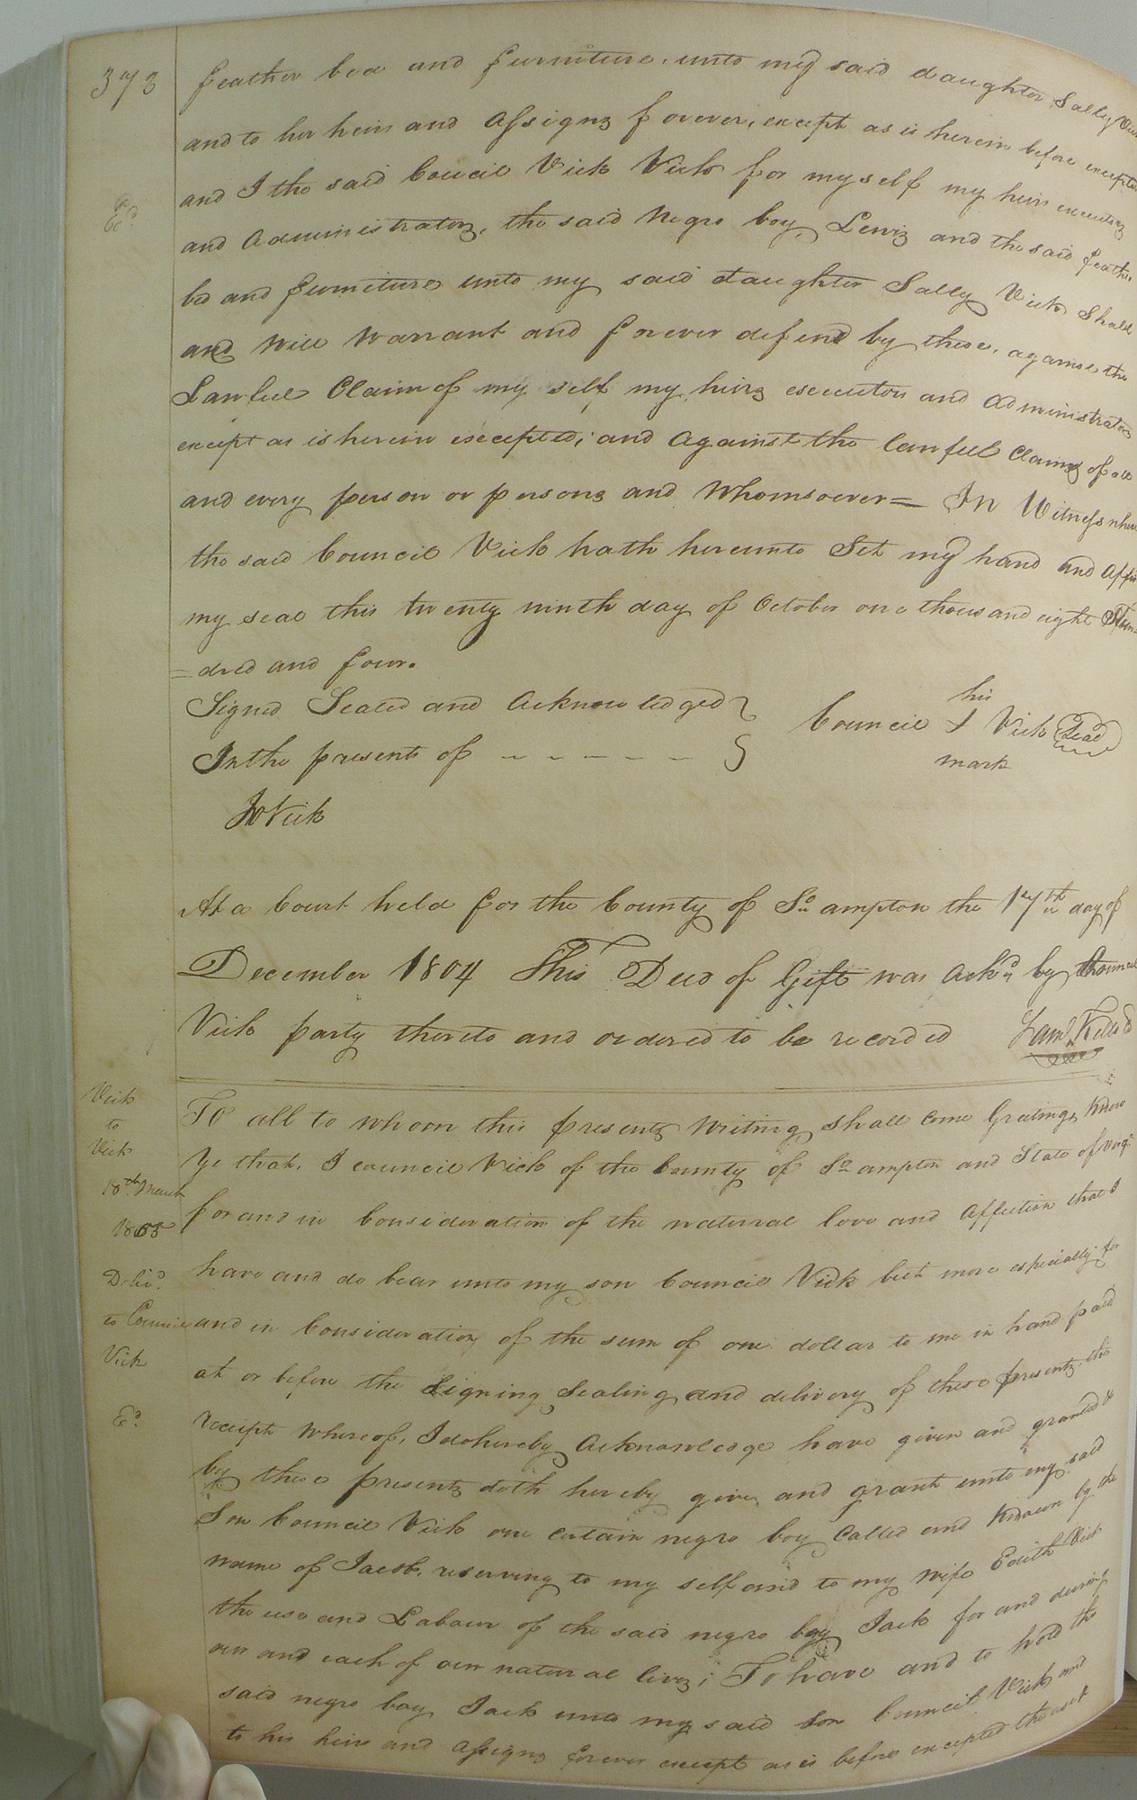 373
feather bed and furniture, unto my said daughter Sally Vick
and to her heirs and Assigns forever, except as is herein before excepted
and I the said Council Vick Vick for myself my heirs executors
Ed.
and Administrators, the said Negro boy, Lewis and the said feather
bd and furniture unto my said daughter Sally Vick Shall
and Will Warrant and forever defend by these, against the
Lawfull Claim of my self my heirs executors and Administrators
except as is herein excepted; and Against the lawfull Claims of all
and every person or persons and Whomsoever = In Witness where
the said Council Vick hath hereunto Set my hand and Affix
my seal this twenty ninth day of October one thousand eight Hun
=dred and four.
Signed Sealed and Acknowledged
In the presents of - - - - - -
his
Council I Vick Seal
mark
Jo Vick
At a Court held for the County of So. ampton the 17th day of
December 1804 This Deed of Gift was Ackd. by Council
Vick party thereto and ordered to be recorded
Saml. Kello
Vick
to
Vick
18th March
Delivd.
to Council
Vick
Ed.
To all to whom this presents Writing shall Come Greetings Know
Ye that, I council Vick of the County of So. ampton and State of Virga.
for and in Consideration of the natural love and Affection that I
have and do bear unto my son Council Vick but more especially for
and in Consideration of the sum of one dollar to me in hand paid
at or before the Signing Sealing and delivery of these presents, the
receipt Whereof, I do hereby Acknowledge have given and granted &
by these presents doth hereby give, and grant unto my said
Son Council Vick one certain negro boy Called and Known by the
name of Jacob, reserving to my self and to my wife Edith Vick
the use and Labour of the said negro boy Jack for and during
our and each of our natural lives; To have and to hold the
said negro boy, Jack unto my said Son Council Vick and
to his heirs and Assigns forever except as is before excepted